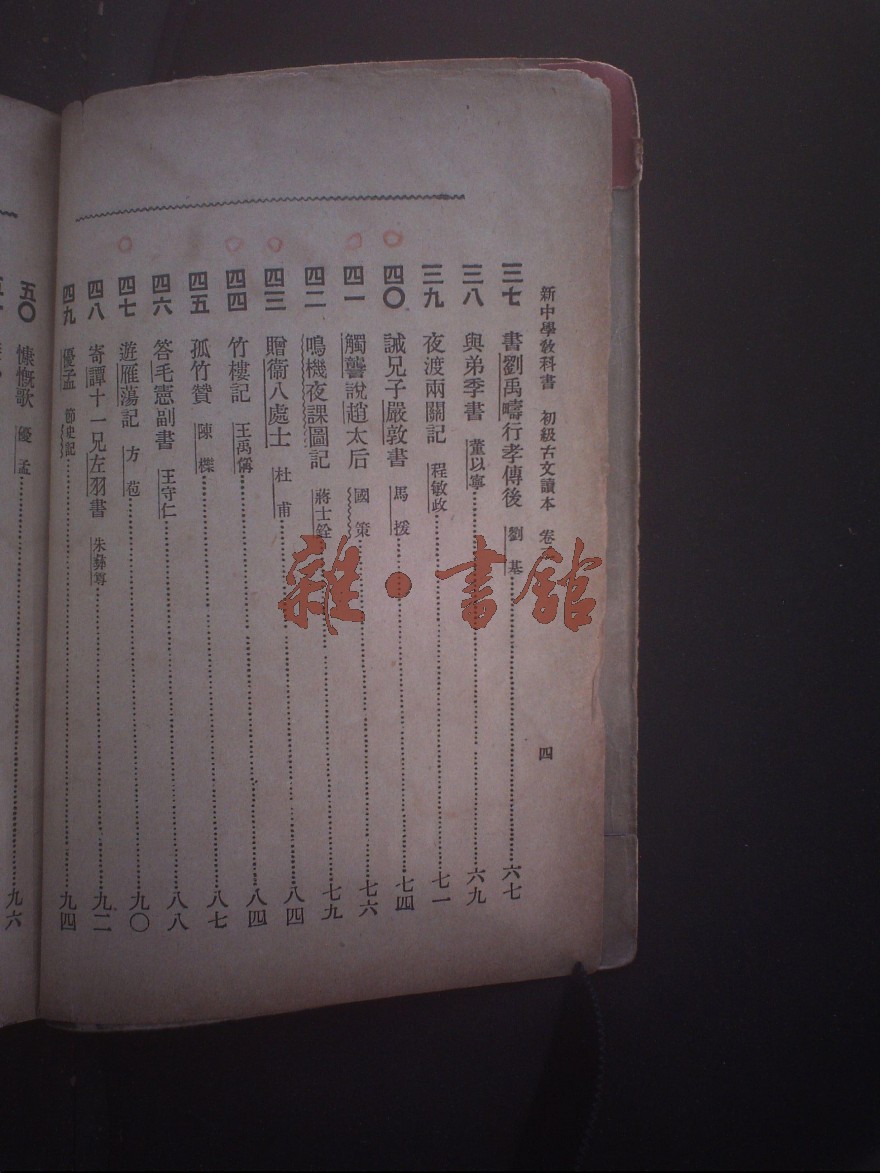 新中學教科書 初級古文讀本 卷 四
三七 書劉禹疇行孝傳後 劉基 六七
三八 與弟季書 董以寧 六九
三九 夜渡兩關記 程敏政 七一
四〇 誡兄子嚴敦書 馬援 七四
四一 觸讋說趙太后 國策 七六
四二 鳴機夜課圖記 蔣士銓 七九
四三 贈衞八處士 杜甫 八四
四四 竹樓記 王禹偁 八四
四五 孤竹贊 陳櫟 八七
四六 答毛憲副書 王守仁 八八
四七 遊雁蕩記 方苞 九〇
四八 寄譚十一兄左羽書 朱彝尊 九二
四九 優孟 節史記 九四
五〇 慷慨歌 優孟 九六
雜·書館